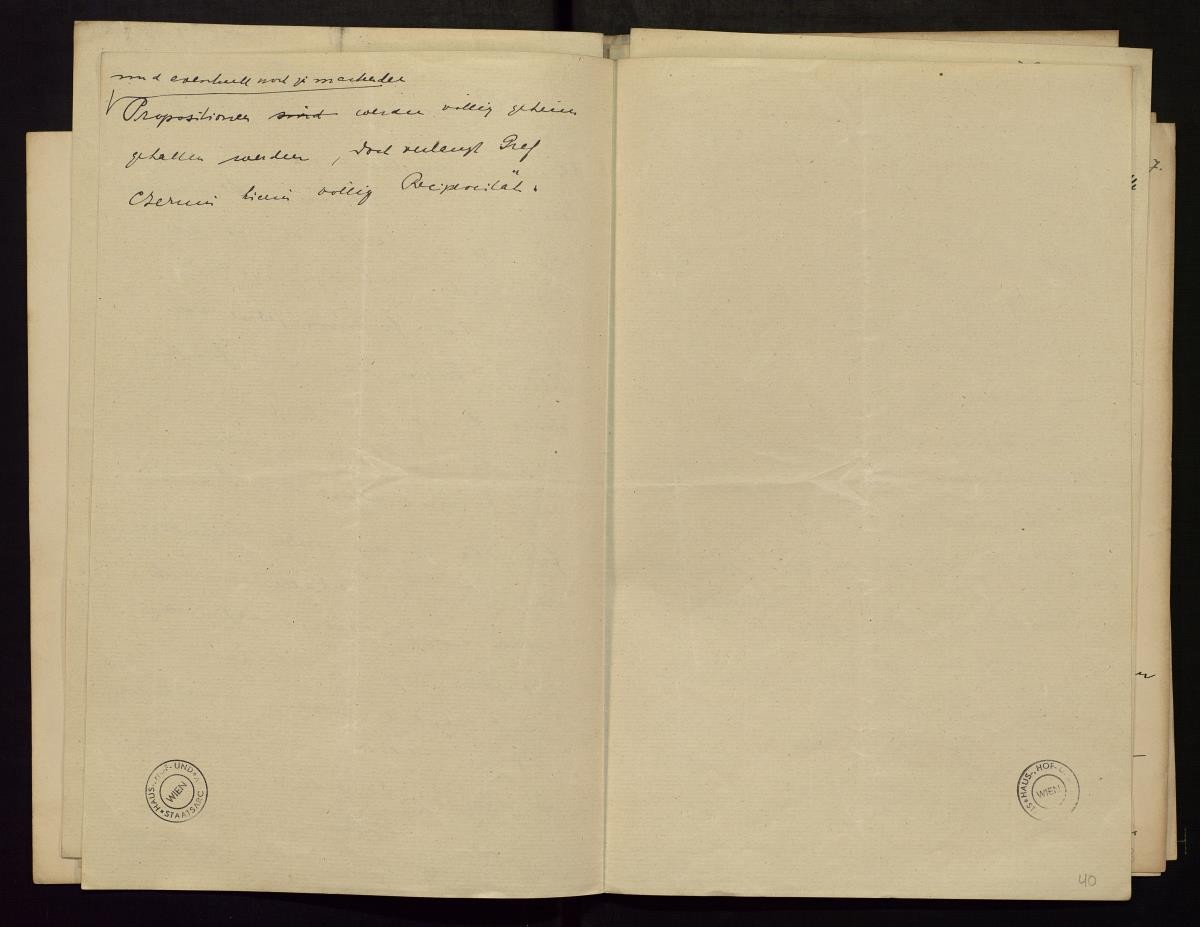 und eventuell noch zu machenden
Propositionen sind werden völlig geheim
gehalten werden, doch verlangt Graf
Czernin hierin völlig Reciprocität.
HAUS-, HOF- UND
STAATSARC
WIEN
HAUS-, HOF-
WIEN
40
7.